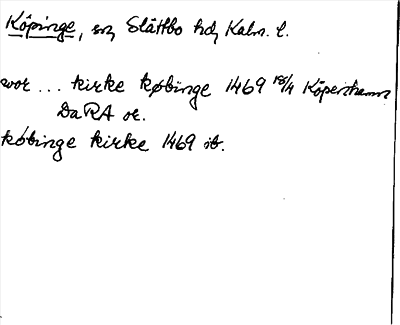 Köpinge, sn, Slättbo hd, Kalm. l.
vor ... kirke købinge 1469 18/4 Köpenhamn
DaRA or.
købinge kirke 1469 ib.